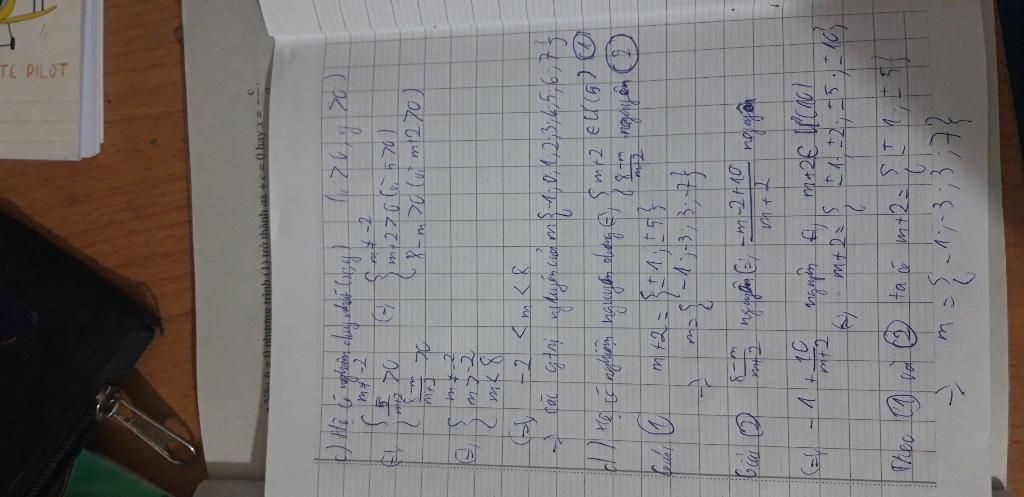 TE PILOT
c) Hệ có nghiệm duy nhất (x;y) (x > 0, y > 0)
(=) { m ≠ -2
5/m+2 > 0
8-m/m+2 > 0
(=) { m ≠ -2
m+2 > 0 (vì 5 > 0)
8-m > 0 (vì m+2 > 0)
(=) { m ≠ -2
m > -2
m < 8
(=) -2 < m < 8
=) các giá trị nguyên của m {-1; 0, 1, 2, 3, 4; 5, 6, 7}
d) Hệ có nghiệm nguyên (=) { m+2 ∈ Ư(5) (1)
8-m/m+2 nguyên (2)
Giải (1) m+2 = {±1; ±5}
=) m = {-1; -3; 3; -7}
Giải (2) 8-m/m+2 nguyên (=) -m-2+10/m+2 nguyên
(=) -1 + 10/m+2 nguyên (=) m+2 ∈ Ư(10)
(=) m+2 = { ±1; ±2; ±5; ±10}
Theo (1) và (2) ta có m+2 = { ±1; ±5}
=) m = {-1; -3; 3; -7}